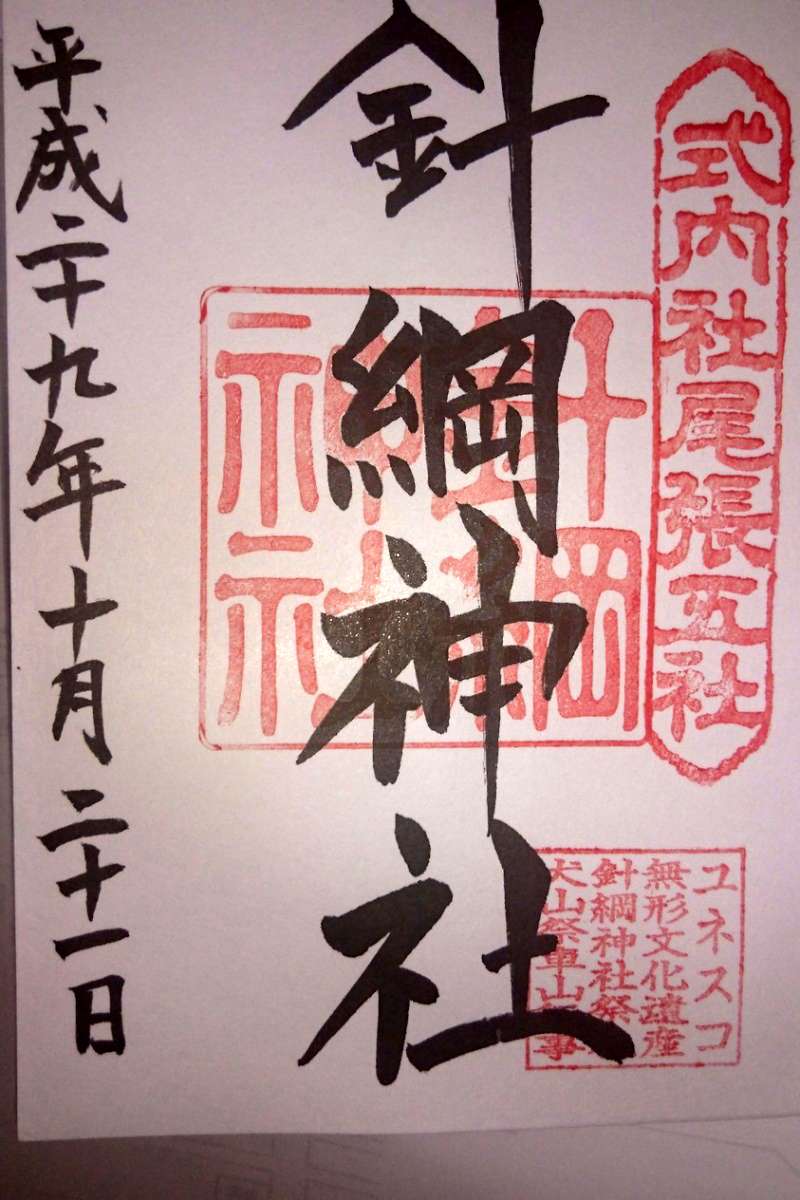 式内社尾張五社
ユネスコ
無形文化遺産
針綱神社祭
犬山祭車山行事
針綱
神社
針綱神社
平成二十九年十月二十一日